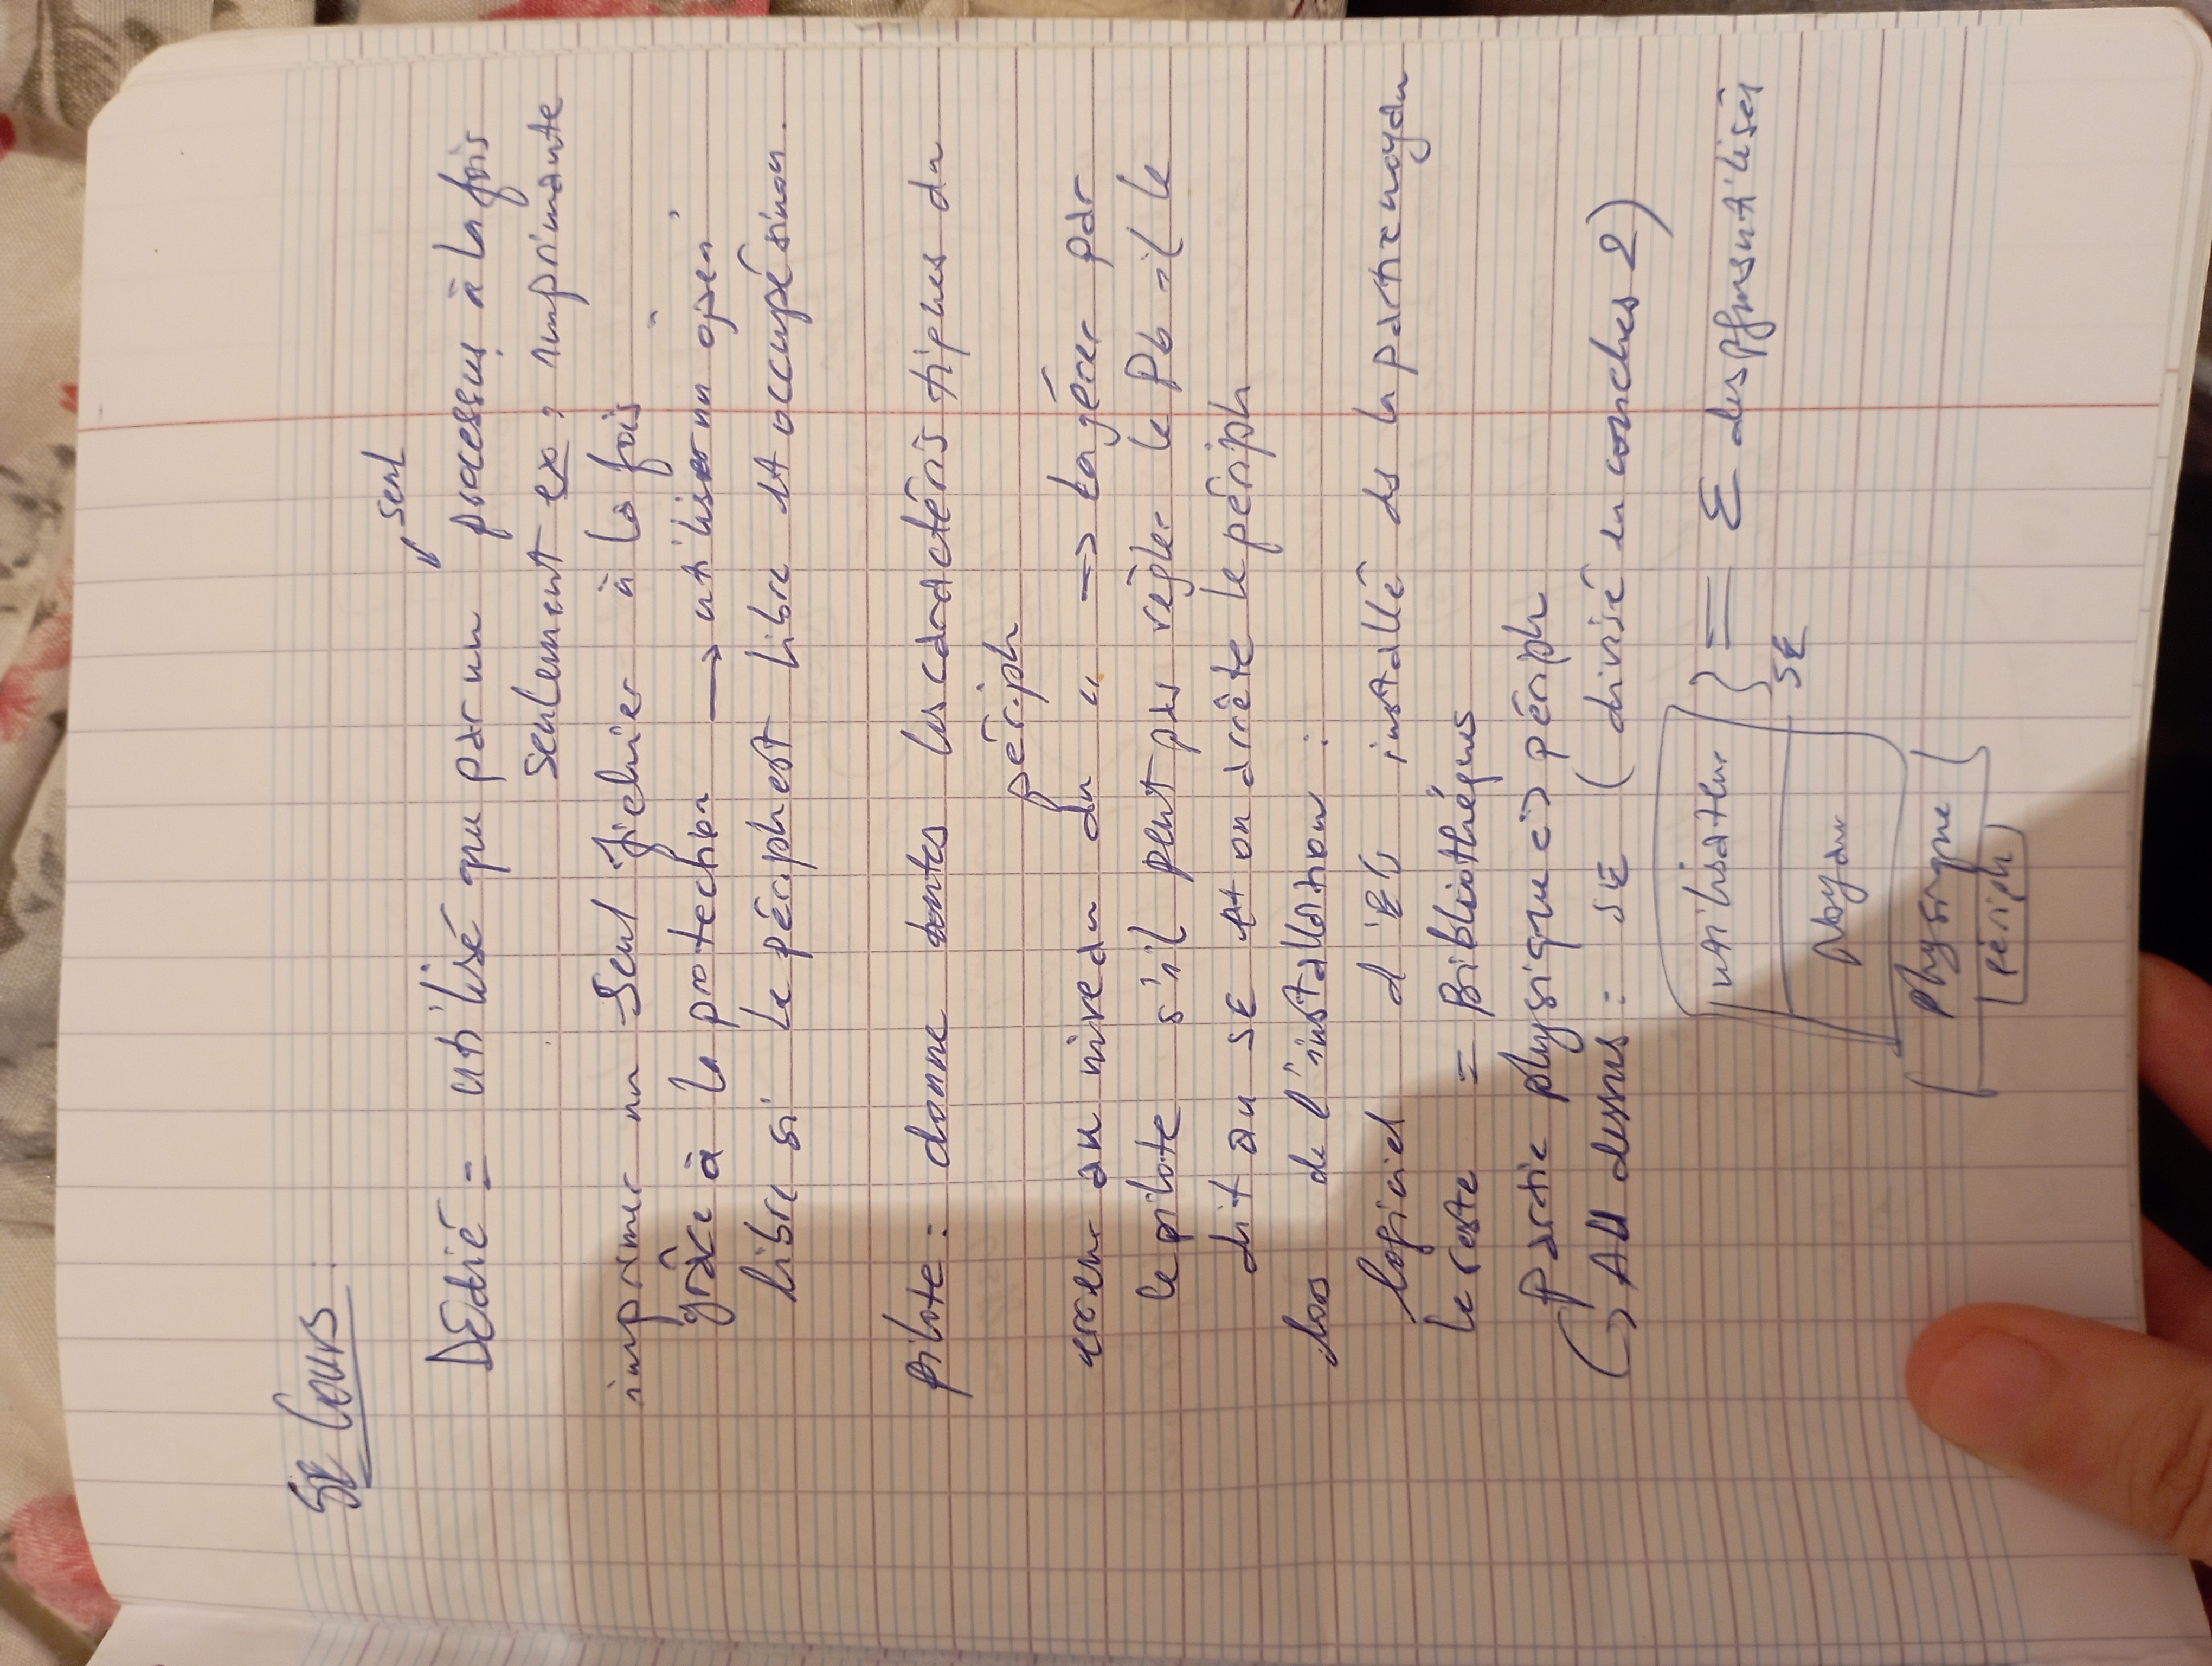 SE Cours :
seul
DEdié = utilisé que par un processus à la fois
seulement ex : imprimante
imprimer un seul fichier à la fois
grâce à la protection → utiliser un
libre si le périph est libre et occupé sinon.
pilote : donne toutes les caractéristiques du
périph
erreur au niveau du " → la gérer par
le pilote s'il peut pas règler le Pb il le
dit au SE et on arrête le périph
lors de l'installation :
logiciel d'E/S installé ds la partie noyau
le reste = Bibliothèques
partie physique <=> périph
↳ AU dessus : SE (divisé en couches 2)
utilisateur } = Σ des pgms utilisés
SE
Noyau
physique
périph